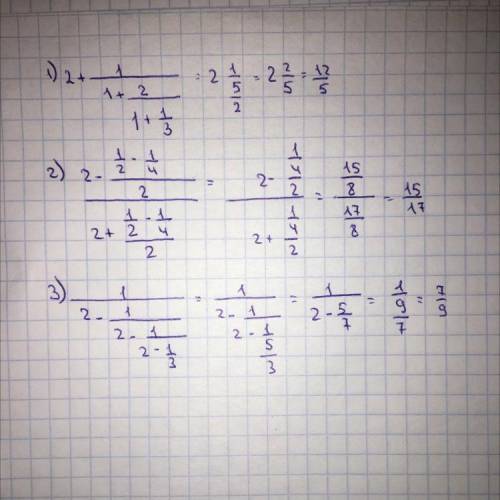 1) 2 + 1/(1 + 2/(1 + 1/3)) = 2 1/(5/2) = 2 2/5 = 12/5
2) (2 - (1/2 - 1/4)/2)/(2 + (1/2 - 1/4)/2) = (2 - (1/4)/2)/(2 + (1/4)/2) = (15/8)/(17/8) = 15/17
3) 1/(2 - 1/(2 - 1/(2 - 1/3))) = 1/(2 - 1/(2 - 1/(5/3))) = 1/(2 - 5/7) = 1/(9/7) = 7/9